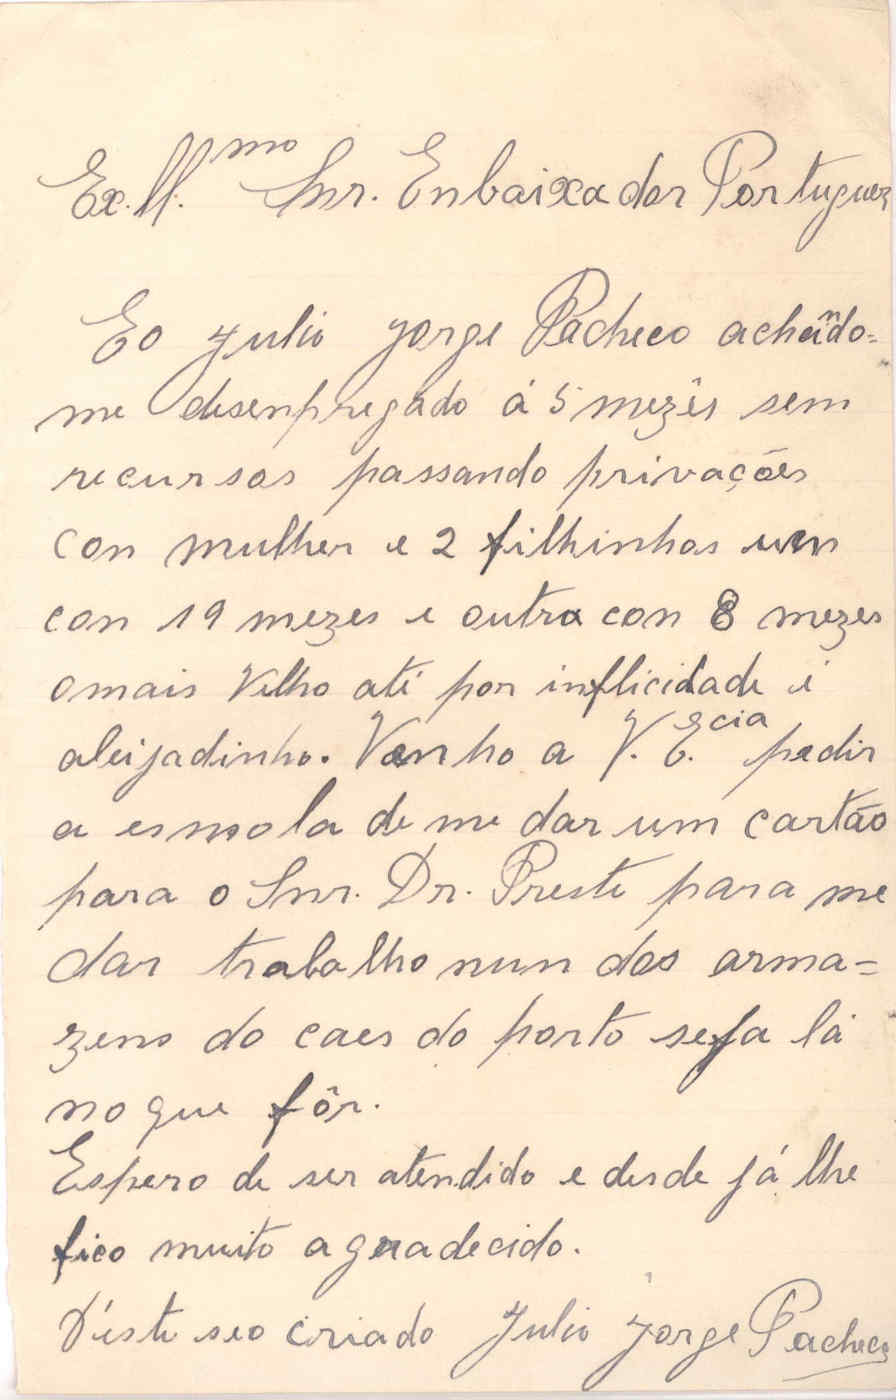 Ex.ll.mo Snr. Enbaixador Portuguez
Eo Julio Jorge Pacheco achando-
me desenpregado á 5 mezês sem
recursos passando privações
con mulher e 2 filhinhos um
con 19 mezes e outra con 8 mezes
omais Velho até por inflicidade é
aleijadinho. Venho a V. E.cia pedir
a esmola de me dar um cartão
para o Snr. Dr. Preste para me
dar trabalho nun dos arma=
zens do caes do porto seja lá
no que fôr.
Espero de ser atendido e desde já lhe
fico muito agradecido.
D'éste seo criado Julio Jorge Pacheco